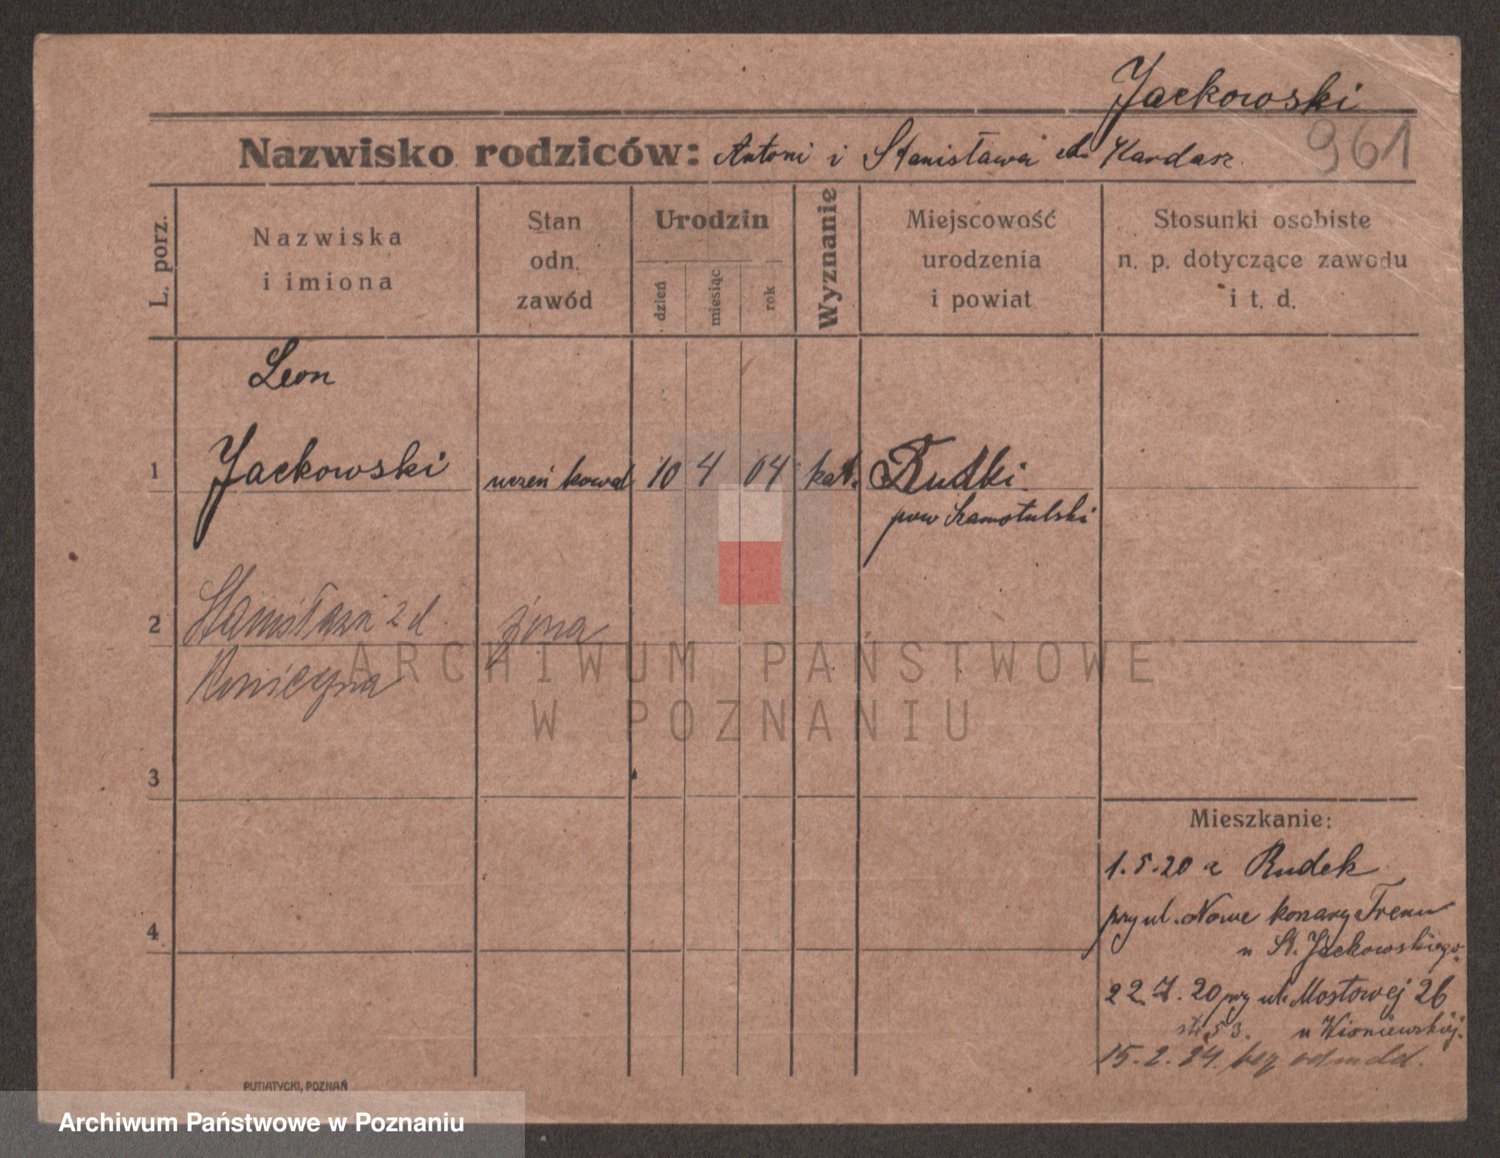 Jackowski
Nazwisko rodziców: Antoni i Stanisława Kardasz.
961
L. porz.
Nazwiska
i imiona
Stan
odn.
zawód
Urodzin
dzień
miesiąc
rok
Wyznanie
Miejscowość
urodzenia
i powiat
Stosunki osobiste
n. p. dotyczące zawodu
i t. d.
Leon
1 Jackowski uczeń kowal 10 4 04 kat. Rudki
pow Szamotulski
2 Stanisława z d. żona
ARCHIWUM PAŃSTWOWE
W POZNANIU
3
4
Mieszkanie:
1.5.20 z Rudek
przy ul. Nowe
u St. Jackowskiego.
22.7.20 przy ul. Mostowej 26
53. u Wiśniewskiej.
15.2.24. bez odmeld.
PUTIATYCKI, POZNAŃ
Archiwum Państwowe w Poznaniu